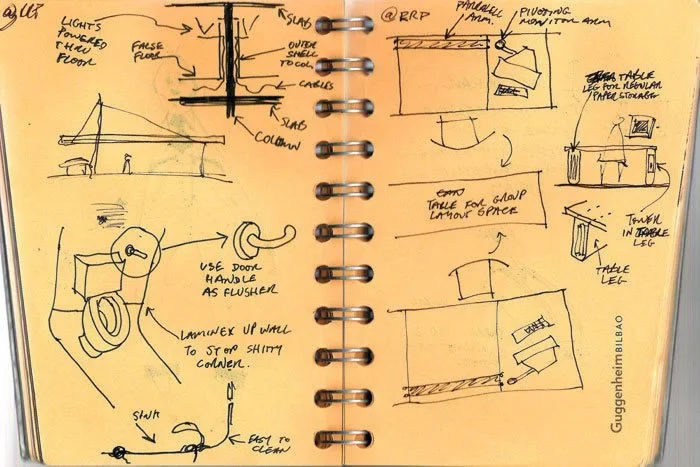 LIGHTS
POWERED
THRU
FLOOR
FALSE
FLOOR
SLAB
OUTER
SHELL
TO COL
CABLES
SLAB
COLUMN
USE DOOR
HANDLE
AS FLUSHER
LAMINEX UP WALL
TO STOP SHITTY
CORNER.
SINK
EASY TO
CLEAN
@RRP
PARRALELL
ARM.
PIVOTING
MONITOR ARM
TABLE
LEG FOR REGULAR
PAPER STORAGE
TABLE FOR GROUP
LAYOUT SPACE
TOWER
IN TABLE
LEG
TABLE
LEG
GuggenheimBILBAO